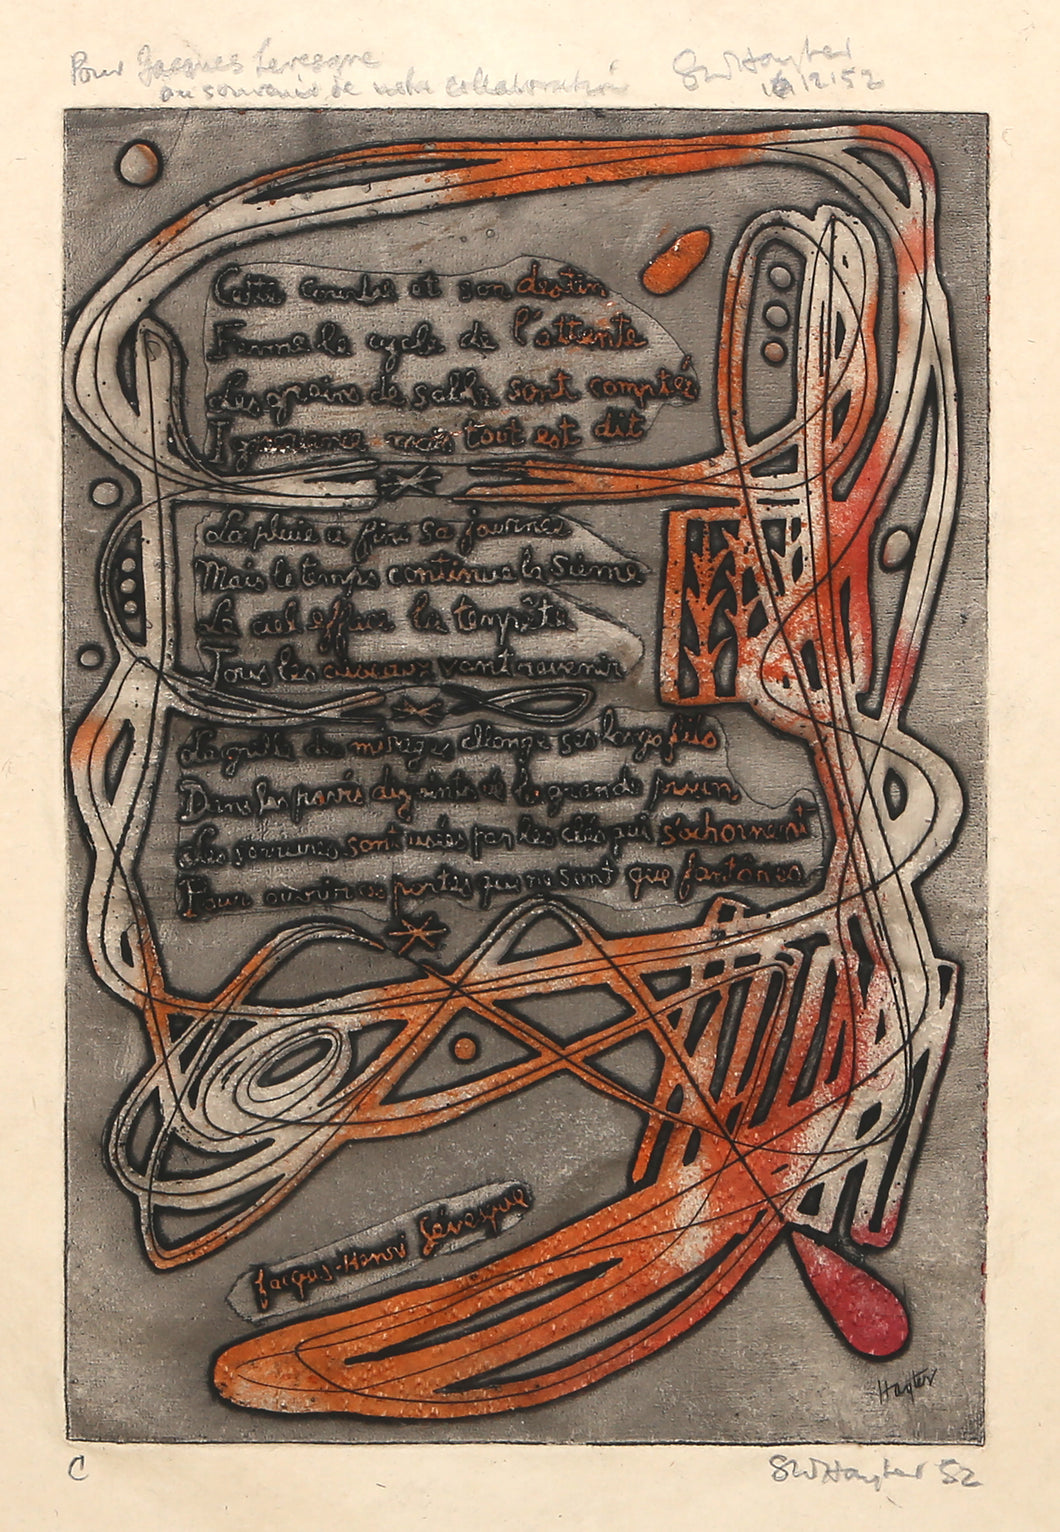 Pour Jacques Levesque
au souvenir de notre collaboration
SWHayter
16/2/52
Cette courbe et son destin
Ferme le cycle de l'attente
Les grains de sable sont comptés
Ignorance mais tout est dit
La pluie a fini sa journée
Mais le temps continue la sienne
Le ciel efface la tempête
Tous les oiseaux vont revenir
La grille des mirages allonge ses longs fils
Dans les parvis de la grande prison
Les serrures sont usées par les clés qui s'acharnent
Pour ouvrir ces portes qui ne sont que fantômes
Jacques-Henri Lévesque
Hayter
C
SWHayter 52